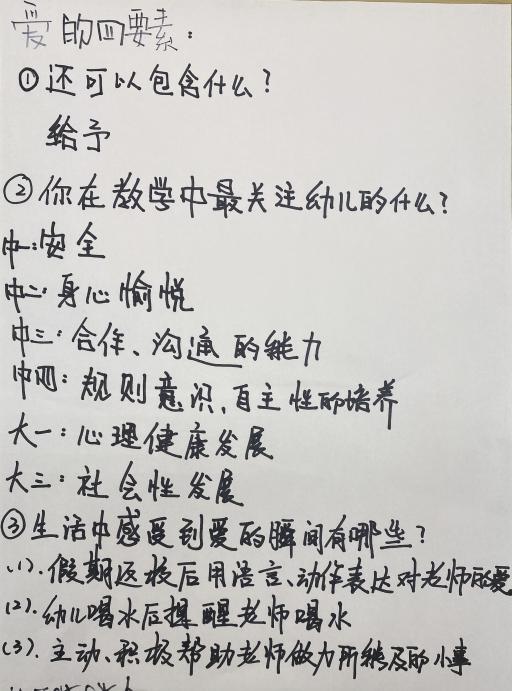 爱的四要素:
①还可以包含什么?
给予
②你在教学中最关注幼儿的什么?
中一:安全
中二:身心愉悦
中三:合作、沟通的能力
中四:规则意识、自主性的培养
大一:心理健康发展
大三:社会性发展
③生活中感受到爱的瞬间有哪些?
(1).假期返校后用语言、动作表达对老师的爱
(2).幼儿喝水后提醒老师喝水
(3).主动、积极帮助老师做力所能及的小事